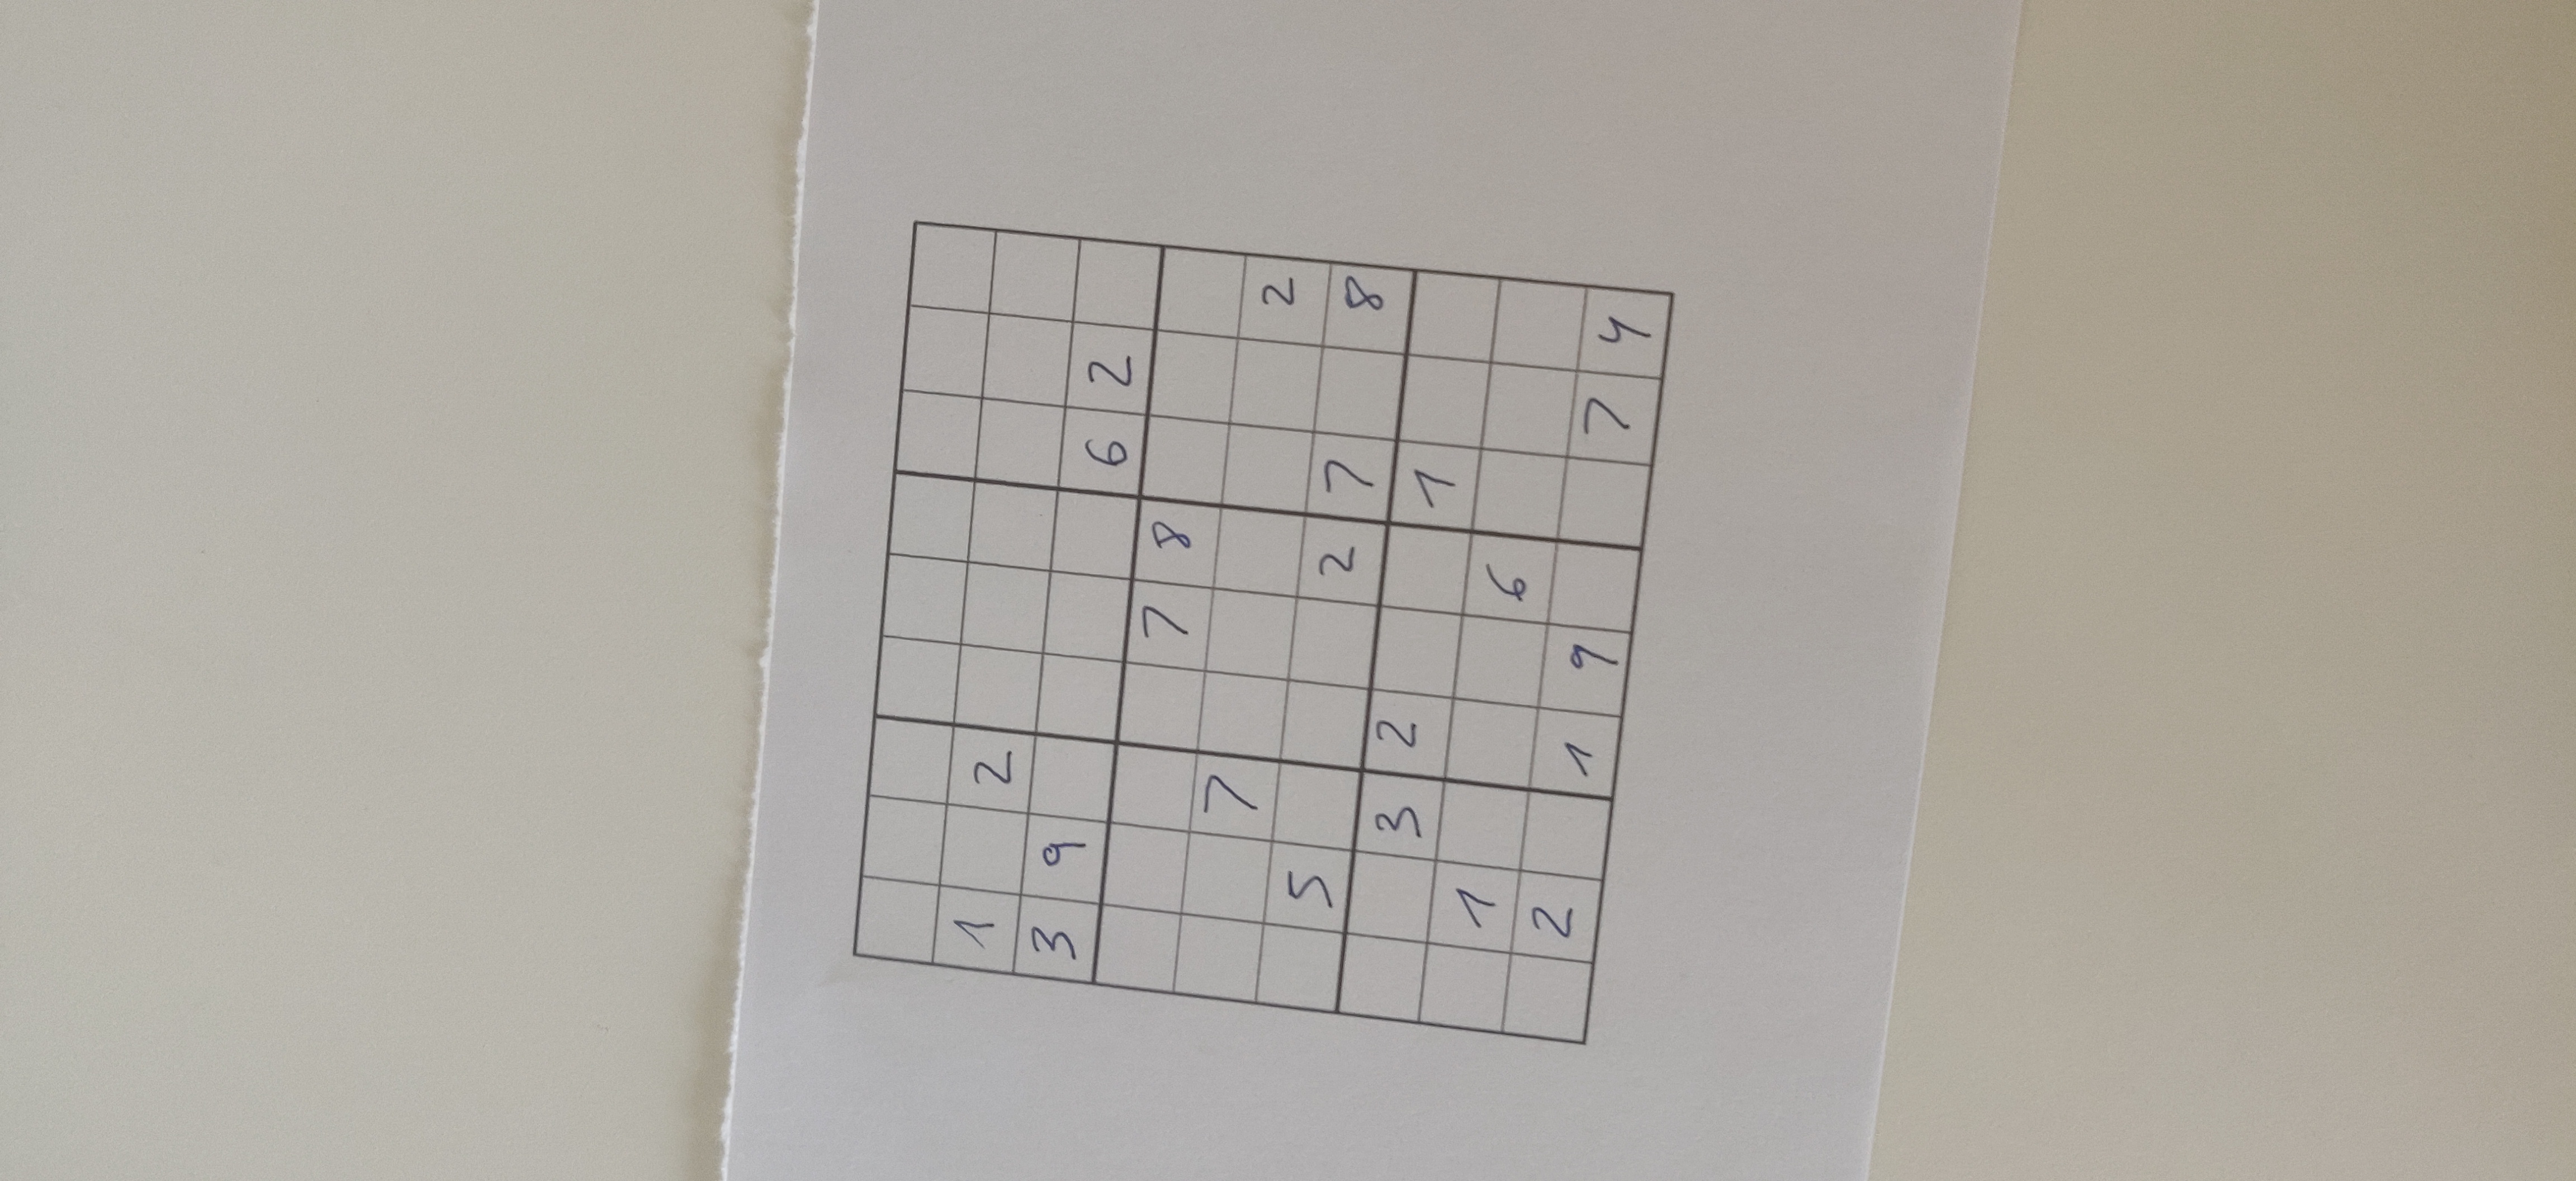 1 2
3 9 6 2
7 8
7 2
5 2 7 8
3 2 1
1 6
2 1 9 7 4